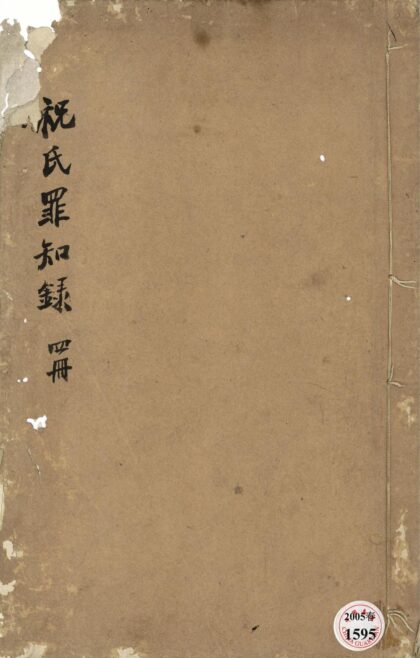 祝氏罪知録 四冊
2005春
1595